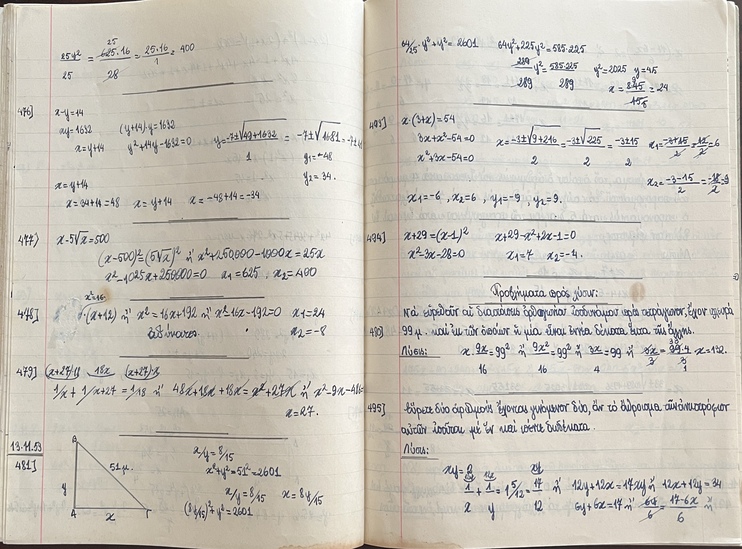 25y²/25 = 625·16/28 = 25·16/1 = 400
476] x-y=14
xy=1632 (y+14)·y=1632
x=y+14 y²+14y-1632=0 y=-7±√49+1632/1 = -7±√1681 = -7±4
y₁=-48
y₂=34.
x=y+14
x=34+14=48 x=y+14 x=-48+14=-34
477) x-5√x=500
(x-500)²=(5√x)² ἤ x²+250,000-1000x=25x
x²-1025x+250000=0 x₁=625, x₂=400
478] x²=16·(x+12) ἤ x²=16x+192 ἤ x²-16x-192=0 x₁=24
ἀδύνατος x₂=-8
479] (x+27)·18 18x (x+27)·x
1/x + 1/x+27 = 1/18 ἤ 18x+18x+18x=x²+27x ἤ x²-9x-486=
x=27.
13.11.53
481] B x/y=8/15
51μ. x²+y²=51²=2601
x/y=8/15 x=8y/15
y (8y/15)²+y²=2601
A x Γ
64/25·y²+y²=2601 64y²+225y²=585.225
289/289 y²=585.225/289 y²=2025 y=45
x=8·45/15=24
493] x·(3+x)=54
3x+x²-54=0 x=-3±√9+216/2=-3±√225/2=-3±15/2 x₁=-3+15/2=12/2=6
x²+3x-54=0
x₂=-3-15/2=-18/2=9
x₁=-6, x₂=6, y₁=-9, y₂=9.
494] x+29=(x-1)² x+29-x²+2x-1=0
x²-3x-28=0 x₁=7 x₂=-4.
Προβλήματα πρὸς λύσιν:
480] Νὰ εὑρεθοῦν αἱ διαστάσεις ὀρθογωνίου ἰσοδυνάμου πρὸς τετράγωνον, ἔχον πλευρὰ
99 μ. καὶ ἐκ τῶν ὁποίων ἡ μία εἶναι ἐννέα δέκατα ἕκτα τῆς ἄλλης.
Λύσις: x 9x/16=99² ἤ 9x²/16=99² ἤ 3x/4=99 ἤ 3x/3=99·4/3 x=132.
495] Εὕρετε δύο ἀριθμοὺς ἔχοντας γινόμενον δύο, ἂν τὸ ἄθροισμα τῶν ἀντιστρόφων
αὐτῶν ἰσοῦται μὲ ἓν καὶ πέντε δωδέκατα.
Λύσις:
xy=2
1/x+1/y=1 5/12=17/12 ἤ 12y+12x=17xy ἤ 12x+12y=34
6y+6x=17 ἤ 6y/6=17-6x/6 ἤ